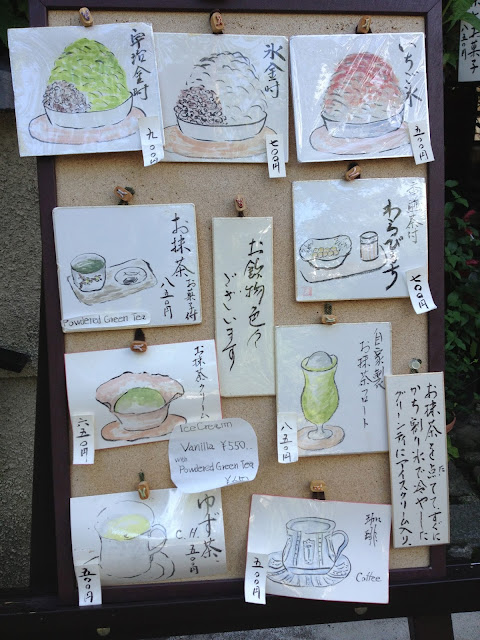 宇治金時
九〇〇円
氷金時
七〇〇円
いちご氷
五〇〇円
お抹茶
お菓子付
八五〇円
Powdered Green Tea
お飲物色々
ございます
お煎茶付
わらびもち
七〇〇円
お抹茶クリーム
六五〇円
IceCream
Vanilla ¥550
with
Powdered Green Tea
自家製
お抹茶フロート
八五〇円
お抹茶を点てて、すぐに
かち割り氷で冷やした
グリーンティにアイスクリーム入り。
ゆず茶
C. H. 五〇〇円
五〇〇円
珈琲
Coffee
五〇〇円
お菓子
八五〇円